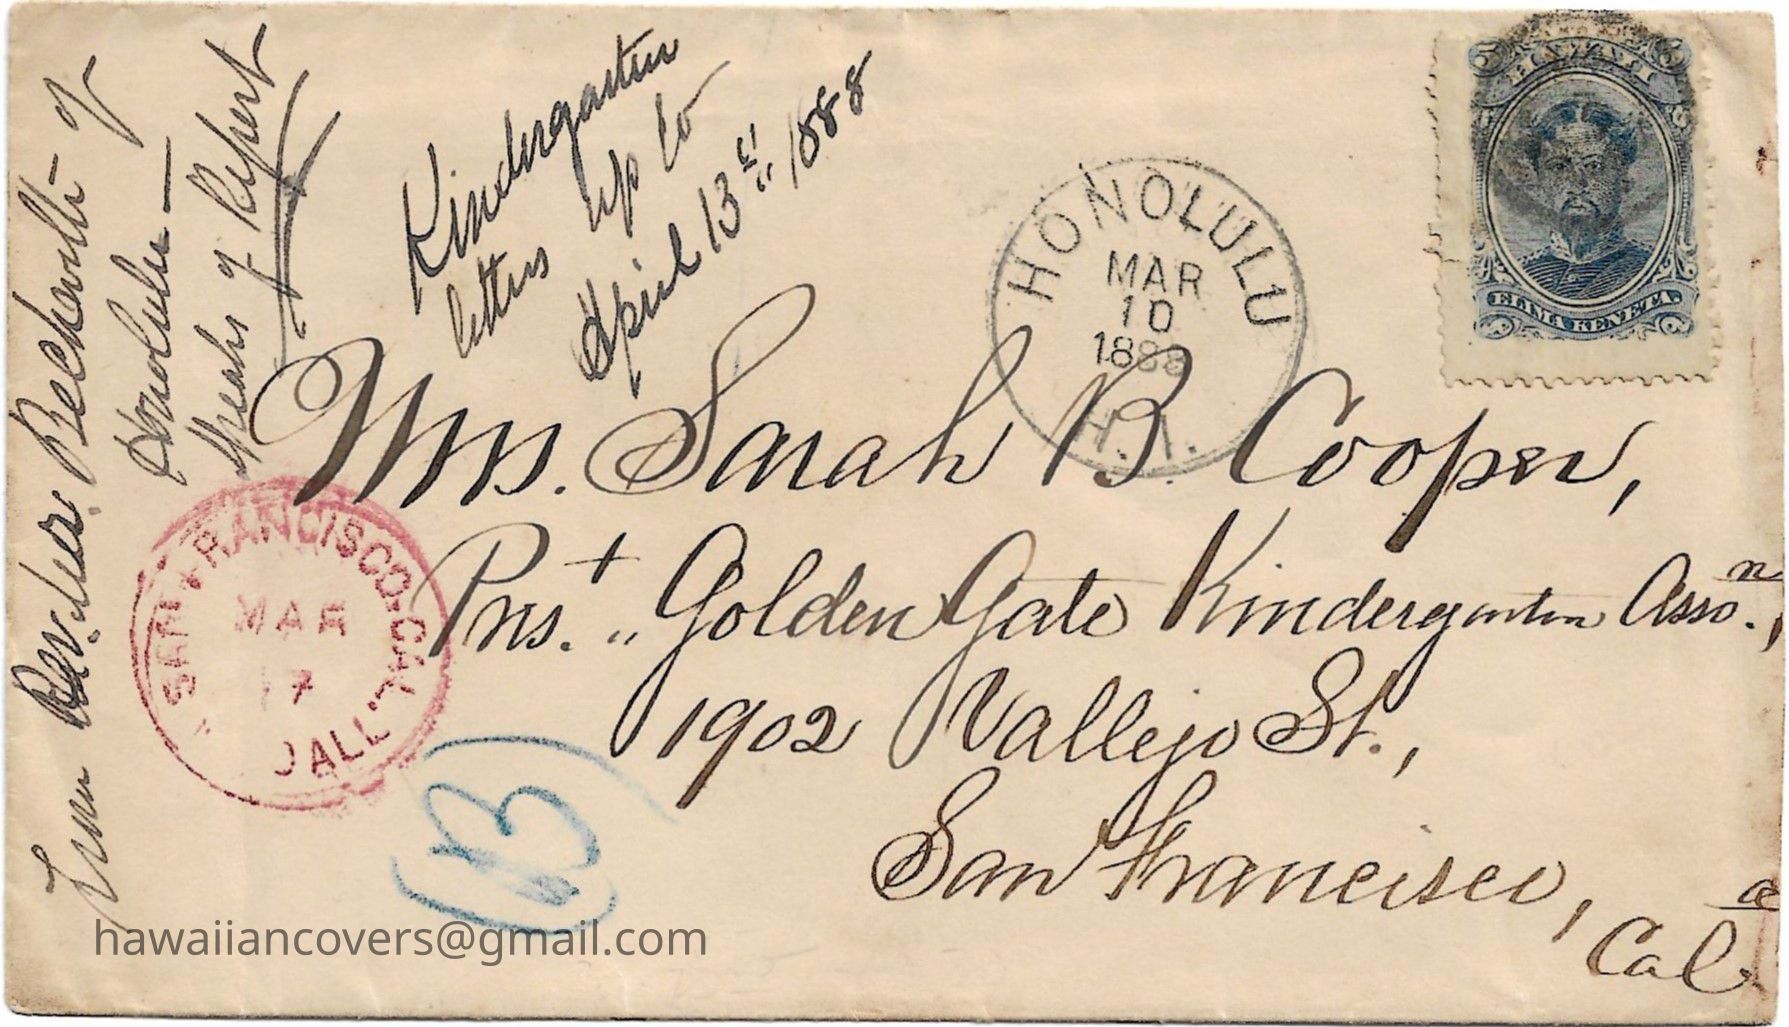 From Rev. Beckwith of
Honolulu —
speaks of Report
Kindergarten
letters up to
April 13th 1888
HONOLULU
MAR
10
1888
H.I.
HAWAII
ELIMA KENETA
Mrs. Sarah B. Cooper,
Prest. "Golden Gate Kindergarten Asson.,
1902 Vallejo St.,
San Francisco,
Cal.
SAN FRANCISCO, CAL.
MAR
17
ALL
B
hawaiiancovers@gmail.com